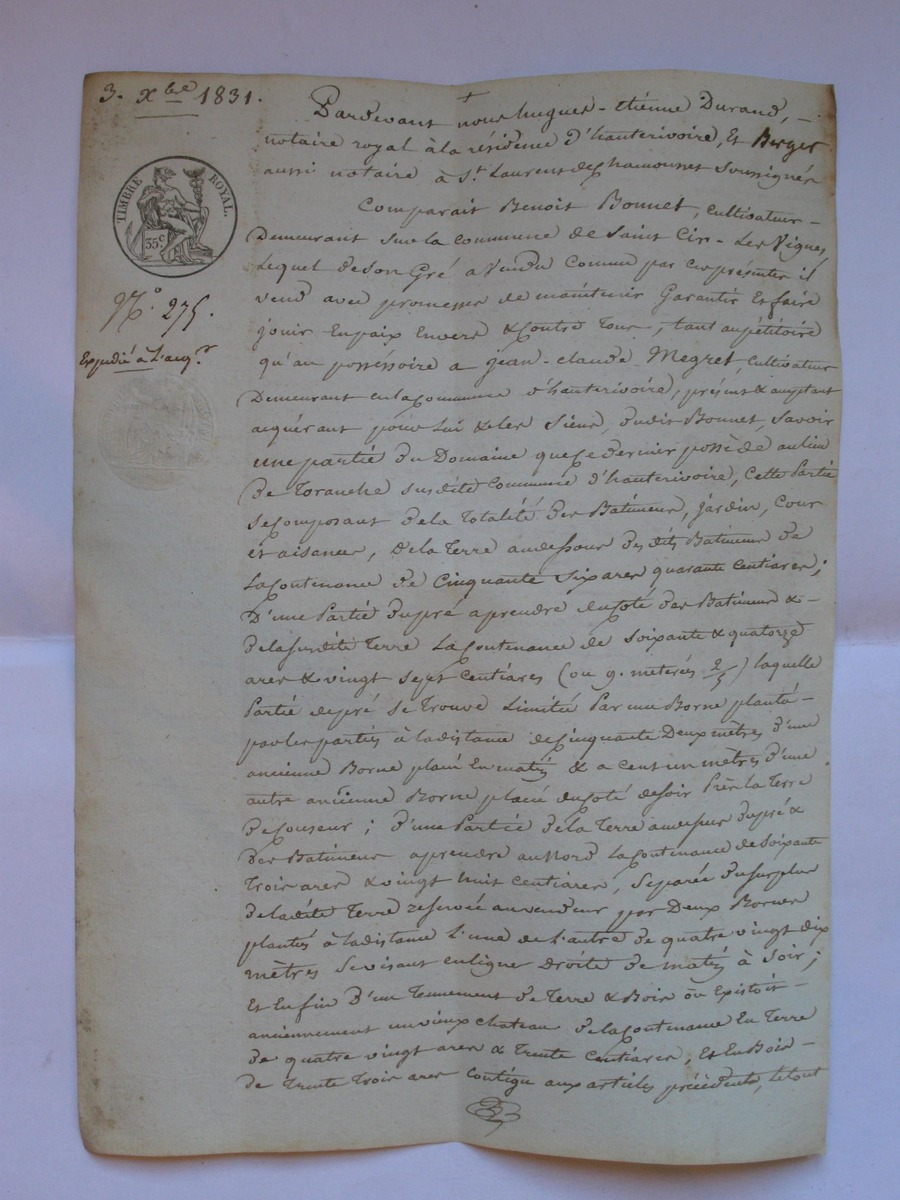 3. Xbre 1831.
TIMBRE ROYAL.
35c
No. 275.
Expédié à l'acqr
Pardevant nous hugues-étienne Durand,
notaire royal à la résidence d'hauterivoire, Et Berger
aussi notaire à St. Laurent de Chamousset Soussignés
Comparait Benoit Bonnet, cultivateur
Demeurant sur la commune de Saint Cir-Les Vignes,
Lequel de son Gré a Vendu Comme par ces présentes il
vend avec promesse de maintenir Garantir Et faire
jouir En paix Envers & Contre Tous, tant au pétitoire
qu'au possessoire a jean-claude Megret, Cultivateur
Demeurant en la Commune d'hauterivoire, présent & acceptant
acquérant pour Lui & les Siens, dudit Bonnet, Savoir
une partie du Domaine que ce dernier possède au lieu
de Toranche susdite Commune d'hauterivoire, Cette Partie
se Composant de la Totalité des Batimens, jardin, Cour
et aisances, de la Terre audessous desdits Batimens de
La Contenance de Cinquante six ares quarante Centiares;
D'une Partie du pré a prendre du Coté des Batimens &
de la susdite Terre La Contenance de soixante & quatorze
ares & vingt sept Centiares (ou 9. meterées 2/5) laquelle
Partie de pré se Trouve Limitée Par une Borne plantée
par les parties à la distance de Cinquante Deux mètres d'une
ancienne Borne placée En matin & a cent un mètres d'une
autre ancienne Borne placée du Coté de soir Près la Terre
de ; d'une Partie de la Terre audessus du pré &
des Batimens a prendre au Nord La Contenance de soixante
Trois ares & vingt huit Centiares, Séparée du surplus
de ladite Terre réservée au vendeur par Deux Bornes
plantées à la distance L'une de L'autre de quatre vingt dix
mètres se visant en ligne droite de matin à Soir;
Et Enfin D'un Tennement de Terre & Bois où Existoit
anciennement un vieux chateau de la Contenance En Terre
de quatre vingt ares & Trente Centiares, Et En Bois
de Trente Trois ares Contigu aux articles précédents, le tout